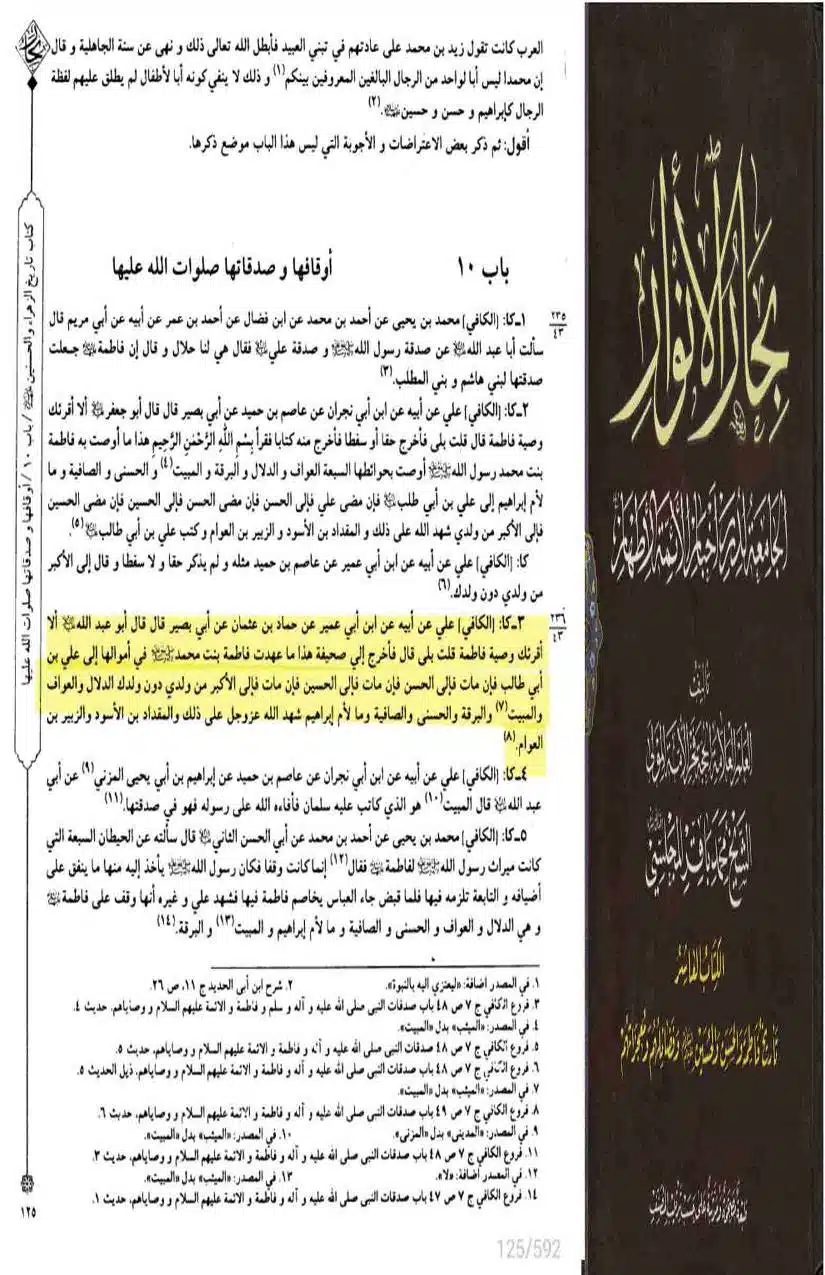 العرب كانت تقول زيد بن محمد على عادتهم في تبني العبيد فأبطل الله تعالى ذلك و نهى عن سنة الجاهلية و قال
إن محمدا ليس أبا لواحد من الرجال البالغين المعروفين بينكم(١) و ذلك لا ينفي كونه أبا لأطفال لم يطلق عليهم لفظة
الرجال كإبراهيم و حسن و حسين.(٢)
أقول: ثم ذكر بعض الاعتراضات و الأجوبة التي ليس هذا الباب موضع ذكرها.
باب ١٠ أوقافها و صدقاتها صلوات الله عليها
٢٣٥
٤٣
١ـ كا: [الكافي] محمد بن يحيى عن أحمد بن محمد عن ابن فضال عن أحمد بن عمر عن أبيه عن أبي مريم قال
سألت أبا عبد الله عن صدقة رسول الله ﷺ و صدقة علي فقال هي لنا حلال و قال إن فاطمة جعلت
صدقتها لبني هاشم و بني المطلب.(٣)
٢ـ كا: [الكافي] علي عن أبيه عن ابن أبي نجران عن عاصم بن حميد عن أبي بصير قال قال أبو جعفر ألا أقرئك
وصية فاطمة قال قلت بلى فأخرج حقا أو سفطا فأخرج منه كتابا فقرأ بِسْمِ اللَّهِ الرَّحْمَنِ الرَّحِيمِ هذا ما أوصت به فاطمة
بنت محمد رسول الله ﷺ أوصت بحوائطها السبعة العواف و الدلال و البرقة و المبيت(٤) و الحسنى و الصافية و ما
لأم إبراهيم إلى علي بن أبي طلب فإن مضى علي فإلى الحسن فإن مضى الحسن فإلى الحسين فإن مضى الحسين
فإلى الأكبر من ولدي شهد الله على ذلك و المقداد بن الأسود و الزبير بن العوام و كتب علي بن أبي طالب(٥).
كا: [الكافي] علي عن أبيه عن ابن أبي عمير عن عاصم بن حميد مثله و لم يذكر حقا و لا سفطا و قال إلى الأكبر
من ولدي دون ولدك.(٦)
٢٣٦
٤٣
٣ـ كا: [الكافي] علي عن أبيه عن ابن أبي عمير عن حماد بن عثمان عن أبي بصير قال قال أبو عبد الله ألا
أقرئك وصية فاطمة قلت بلى قال فأخرج إلي صحيفة هذا ما عهدت فاطمة بنت محمد ﷺ في أموالها إلى علي بن
أبي طالب فإن مات فإلى الحسن فإن مات فإلى الحسين فإن مات فإلى الأكبر من ولدي دون ولدك الدلال والعواف
والمبيت(٧) والبرقة والحسنى والصافية وما لأم إبراهيم شهد الله عزوجل على ذلك والمقداد بن الأسود والزبير بن
العوام.(٨)
٤ـ كا: [الكافي] علي عن أبيه عن ابن أبي نجران عن عاصم بن حميد عن إبراهيم بن أبي يحيى المزني(٩) عن أبي
عبد الله قال المبيت(١٠) هو الذي كاتب عليه سلمان فأفاءه الله على رسوله فهو في صدقتها.(١١)
٥ـ كا: [الكافي] محمد بن يحيى عن أحمد بن محمد عن أبي الحسن الثاني قال سألته عن الحيطان السبعة التي
كانت ميراث رسول الله ﷺ لفاطمة فقال(١٢) إنما كانت وقفا فكان رسول الله ﷺ يأخذ إليه منها ما ينفق على
أضيافه و التابعة تلزمه فيها فلما قبض جاء العباس يخاصم فاطمة فيها فشهد علي و غيره أنها وقف على فاطمة
و هي الدلال و العواف و الحسنى و الصافية و ما لأم إبراهيم و المبيت(١٣) و البرقة.(١٤)
١. في المصدر اضافة: «ليعتزي اليه بالنبوة». ٢. شرح ابن أبى الحديد ج ١١، ص ٢٦.
٣. فروع الكافي ج ٧ ص ٤٨ باب صدقات النبى صلى الله عليه و آله و سلم و فاطمة و الائمة عليهم السلام و وصاياهم، حديث ٤.
٤. في المصدر: «الميثب» بدل «المبيت».
٥. فروع الكافي ج ٧ ص ٤٨ صدقات النبى صلى الله عليه و آله و فاطمة و الائمة عليهم السلام و وصاياهم، حديث ٥.
٦. فروع الكافي ج ٧ ص ٤٨ باب صدقات النبى صلى الله عليه و آله و فاطمة و الائمة عليهم السلام و وصاياهم، ذيل الحديث ٥.
٧. في المصدر: «الميثب» بدل «المبيت».
٨. فروع الكافي ج ٧ ص ٤٩ باب صدقات النبى صلى الله عليه و آله و فاطمة و الائمة عليهم السلام و وصاياهم، حديث ٦.
٩. في المصدر: «المدينى» بدل «المزنى». ١٠. في المصدر: «الميثب» بدل «المبيت».
١١. فروع الكافي ج ٧ ص ٤٨ باب صدقات النبى صلى الله عليه و آله و فاطمة و الائمة عليهم السلام و وصاياهم، حديث ٣.
١٢. في المصدر اضافة: «لا». ١٣. في المصدر: «الميثب» بدل «المبيت».
١٤. فروع الكافي ج ٧ ص ٤٧ باب صدقات النبى صلى الله عليه و آله و فاطمة و الائمة عليهم السلام و وصاياهم، حديث ١.
كتاب تاريخ الزهراء والحسنين / باب ١٠ / أوقافها و صدقاتها صلوات الله عليها
١٢٥
125/592
بحار الأنوار
الجامعة لدرر أخبار الأئمة الأطهار
تأليف
العلم العلامة الحجة فخر الأمة المولى
الشيخ محمد باقر المجلسي
الكتاب العاشر
تاريخ فاطمة والحسن والحسين وفضائلهم ومعجزاتهم